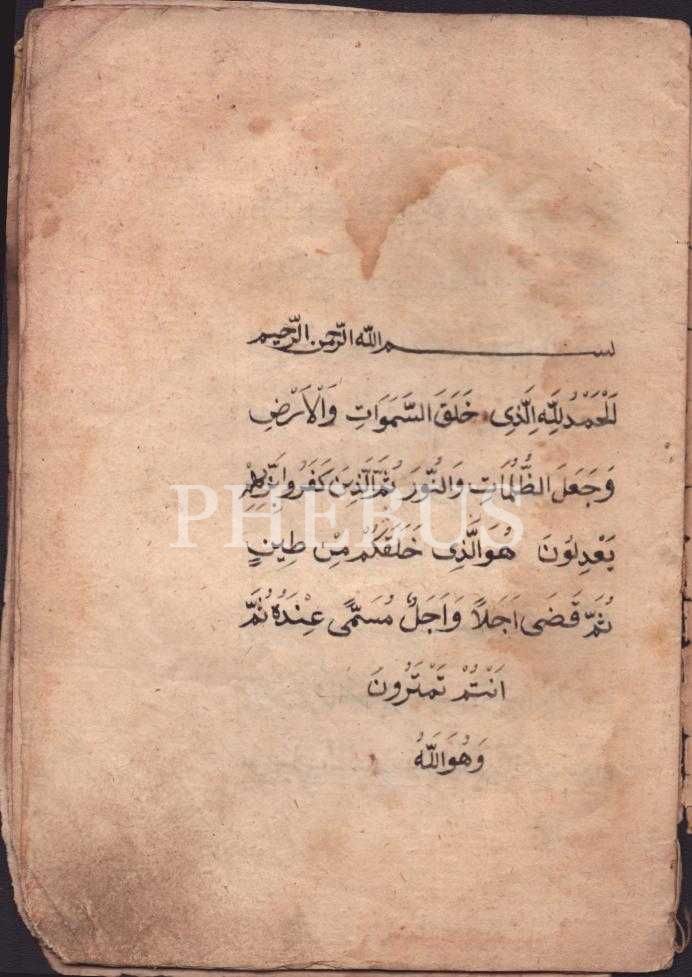 بسم الله الرحمن الرحيم
اَلْحَمْدُ لِلّٰهِ الَّذِى خَلَقَ السَّمَوَاتِ وَالْاَرْضِ
وَجَعَلَ الظُّلُمَاتِ وَالنُّورَ ثُمَّ الَّذِينَ كَفَرُوا بِرَبِّهِمْ
يَعْدِلُونَ هُوَ الَّذِى خَلَقَكُمْ مِنْ طِينٍ
ثُمَّ قَضَى اَجَلًا وَاَجَلٌ مُسَمًّى عِنْدَهُ ثُمَّ
اَنْتُمْ تَمْتَرُونَ
وَهُوَ اللّٰهُ
PHEBUS